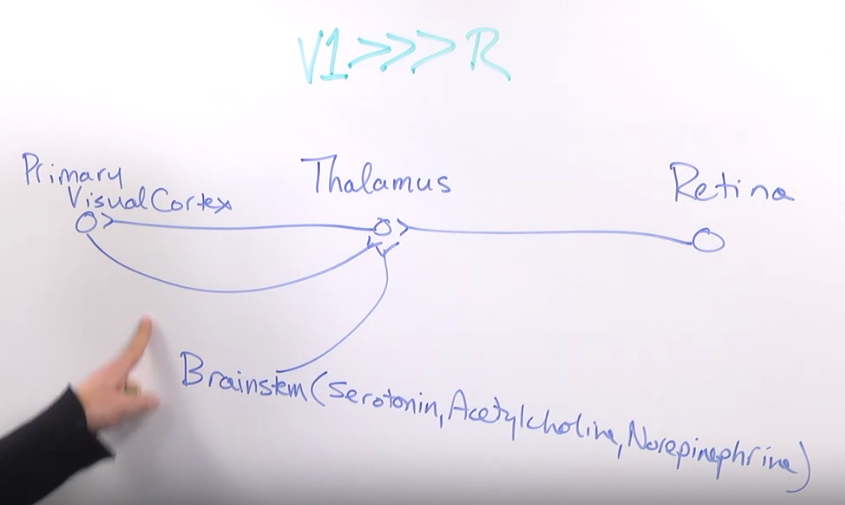 V1>>>R
Primary
Visual Cortex
Thalamus
Retina
Brainstem (Serotonin, Acetylcholine, Norepinephrine)